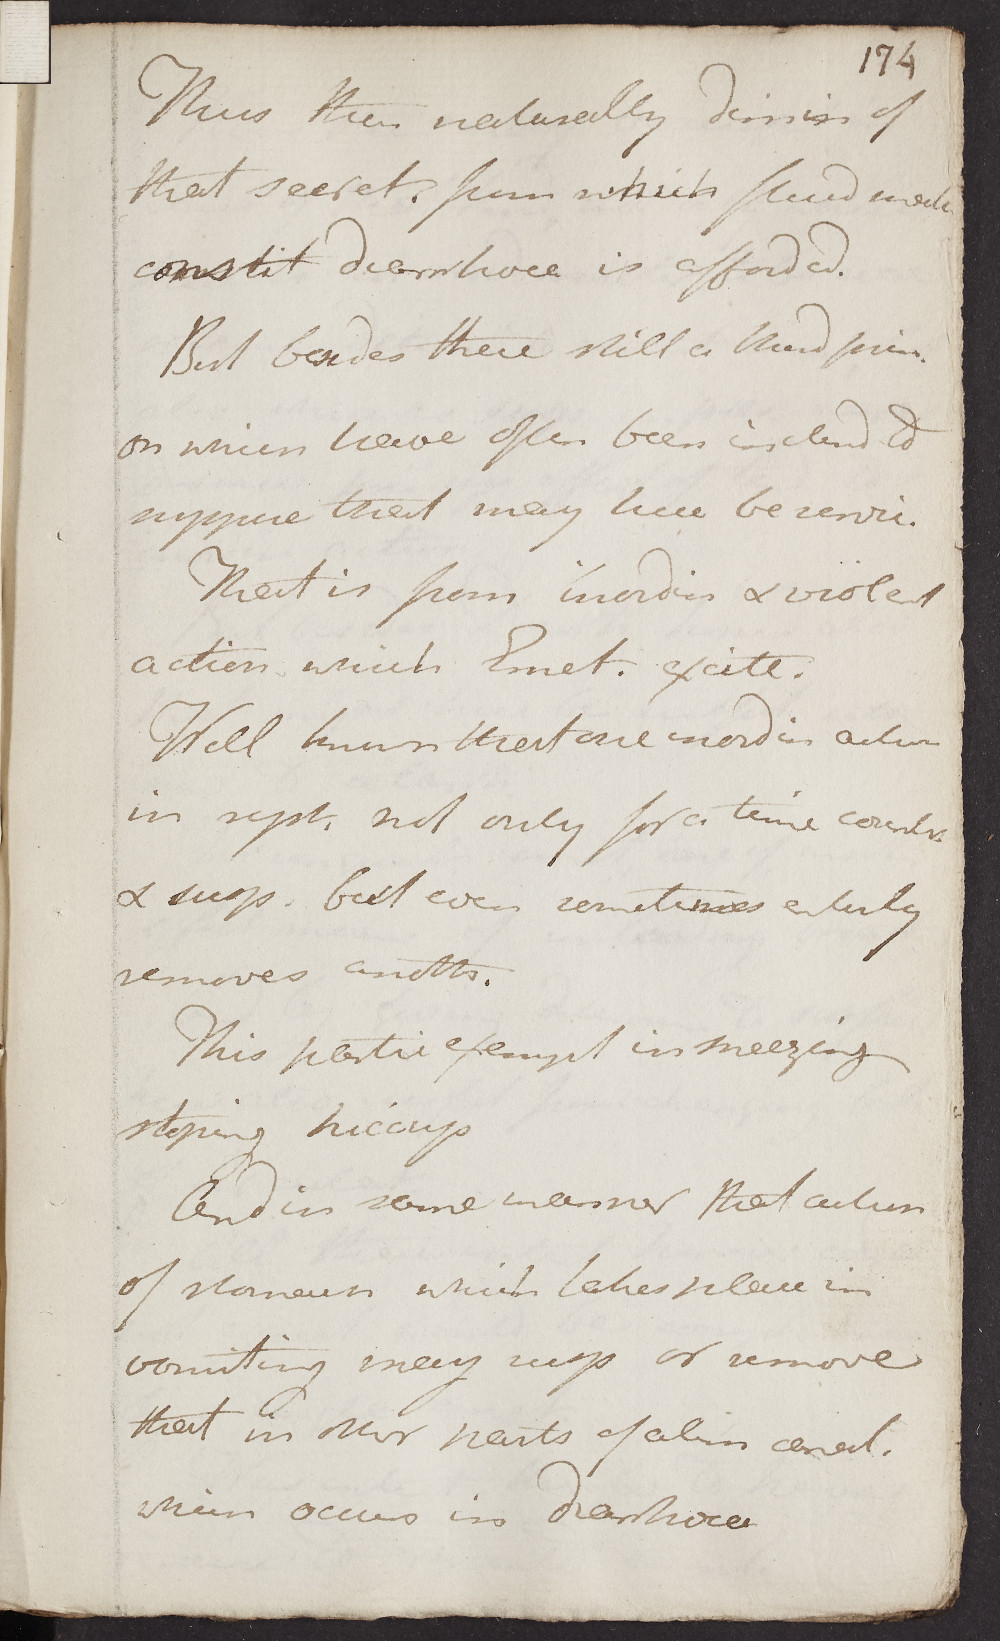 174
Thus then naturally dimin of
that secret. from which fluid
constit diarrhoea is afforded.
But besides there still a third prin.
on which have often been inclined to
suppose that may here be servic.
That is from inordin & violent
action which Emet. excite.
Well known that one inordin action
in syst. not only for a time
& susp. but even sometimes entirely
removes anothr.
This partic exempl in sneezing
stoping hiccup
And in same manner that action
of stomach which takes place in
vomiting may susp or remove
that in othr parts of alim canal.
which occurs in diarrhoea